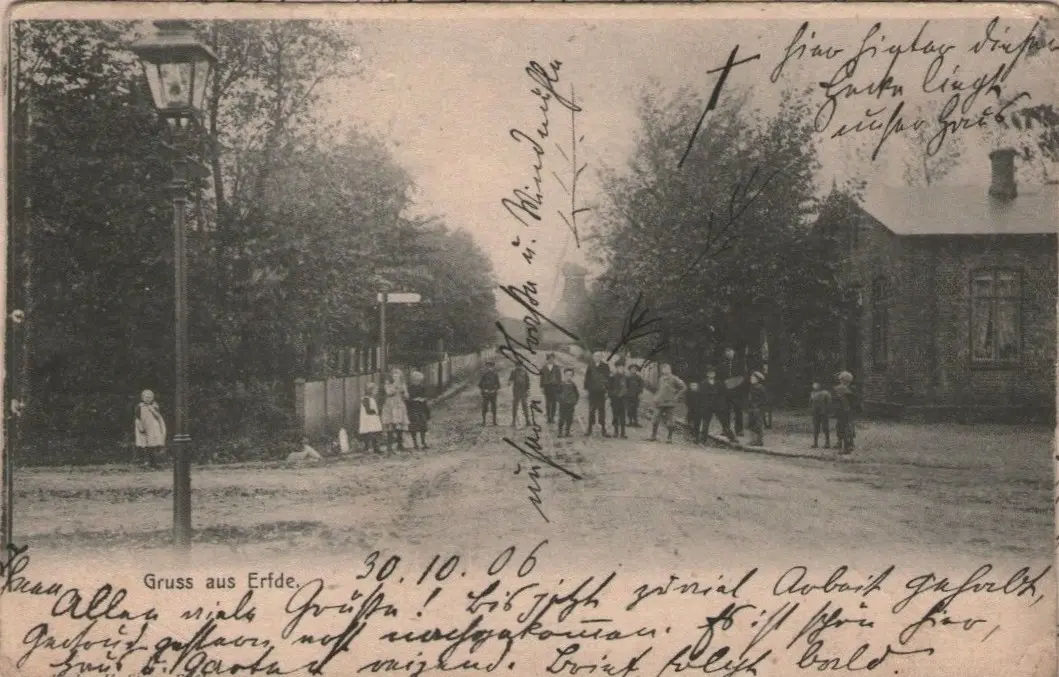 hier hinter dieser
Hecke liegt
unser Haus
unsere Straße u. Windmühle
Gruss aus Erfde.
30.10.06
Ihnen
Allen viele Grüße! Bis jetzt zuviel Arbeit gehabt,
Gertrud gestern erst nachgekommen. Es ist schön hier,
Haus u. Garten reizend. Brief folgt bald.